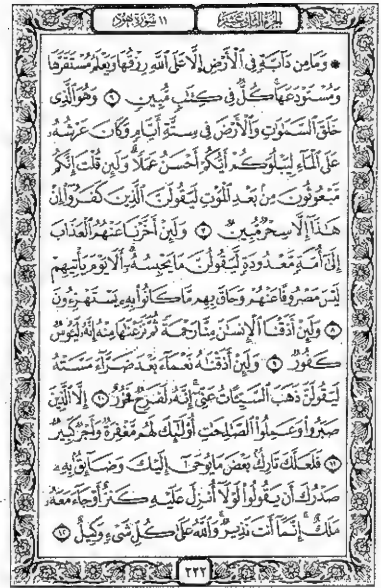 الجزء الثاني عشر ١١ سورة هود
۞ وَمَا مِن دَآبَّةٍ فِي الْأَرْضِ إِلَّا عَلَى اللَّهِ رِزْقُهَا وَيَعْلَمُ مُسْتَقَرَّهَا
وَمُسْتَوْدَعَهَا كُلٌّ فِي كِتَابٍ مُّبِينٍ ٦ وَهُوَ الَّذِي
خَلَقَ السَّمَاوَاتِ وَالْأَرْضَ فِي سِتَّةِ أَيَّامٍ وَكَانَ عَرْشُهُ
عَلَى الْمَاءِ لِيَبْلُوَكُمْ أَيُّكُمْ أَحْسَنُ عَمَلًا وَلَئِن قُلْتَ إِنَّكُم
مَّبْعُوثُونَ مِن بَعْدِ الْمَوْتِ لَيَقُولَنَّ الَّذِينَ كَفَرُوا إِنْ
هَٰذَا إِلَّا سِحْرٌ مُّبِينٌ ٧ وَلَئِنْ أَخَّرْنَا عَنْهُمُ الْعَذَابَ
إِلَىٰ أُمَّةٍ مَّعْدُودَةٍ لَّيَقُولُنَّ مَا يَحْبِسُهُ أَلَا يَوْمَ يَأْتِيهِمْ
لَيْسَ مَصْرُوفًا عَنْهُمْ وَحَاقَ بِهِم مَّا كَانُوا بِهِ يَسْتَهْزِءُونَ
٨ وَلَئِنْ أَذَقْنَا الْإِنسَانَ مِنَّا رَحْمَةً ثُمَّ نَزَعْنَاهَا مِنْهُ إِنَّهُ لَيَئُوسٌ
كَفُورٌ ٩ وَلَئِنْ أَذَقْنَاهُ نَعْمَاءَ بَعْدَ ضَرَّاءَ مَسَّتْهُ
لَيَقُولَنَّ ذَهَبَ السَّيِّئَاتُ عَنِّي إِنَّهُ لَفَرِحٌ فَخُورٌ ١٠ إِلَّا الَّذِينَ
صَبَرُوا وَعَمِلُوا الصَّالِحَاتِ أُولَٰئِكَ لَهُم مَّغْفِرَةٌ وَأَجْرٌ كَبِيرٌ
١١ فَلَعَلَّكَ تَارِكٌ بَعْضَ مَا يُوحَىٰ إِلَيْكَ وَضَائِقٌ بِهِ
صَدْرُكَ أَن يَقُولُوا لَوْلَا أُنزِلَ عَلَيْهِ كَنزٌ أَوْ جَاءَ مَعَهُ
مَلَكٌ إِنَّمَا أَنتَ نَذِيرٌ وَاللَّهُ عَلَىٰ كُلِّ شَيْءٍ وَكِيلٌ ١٢
٢٢٢